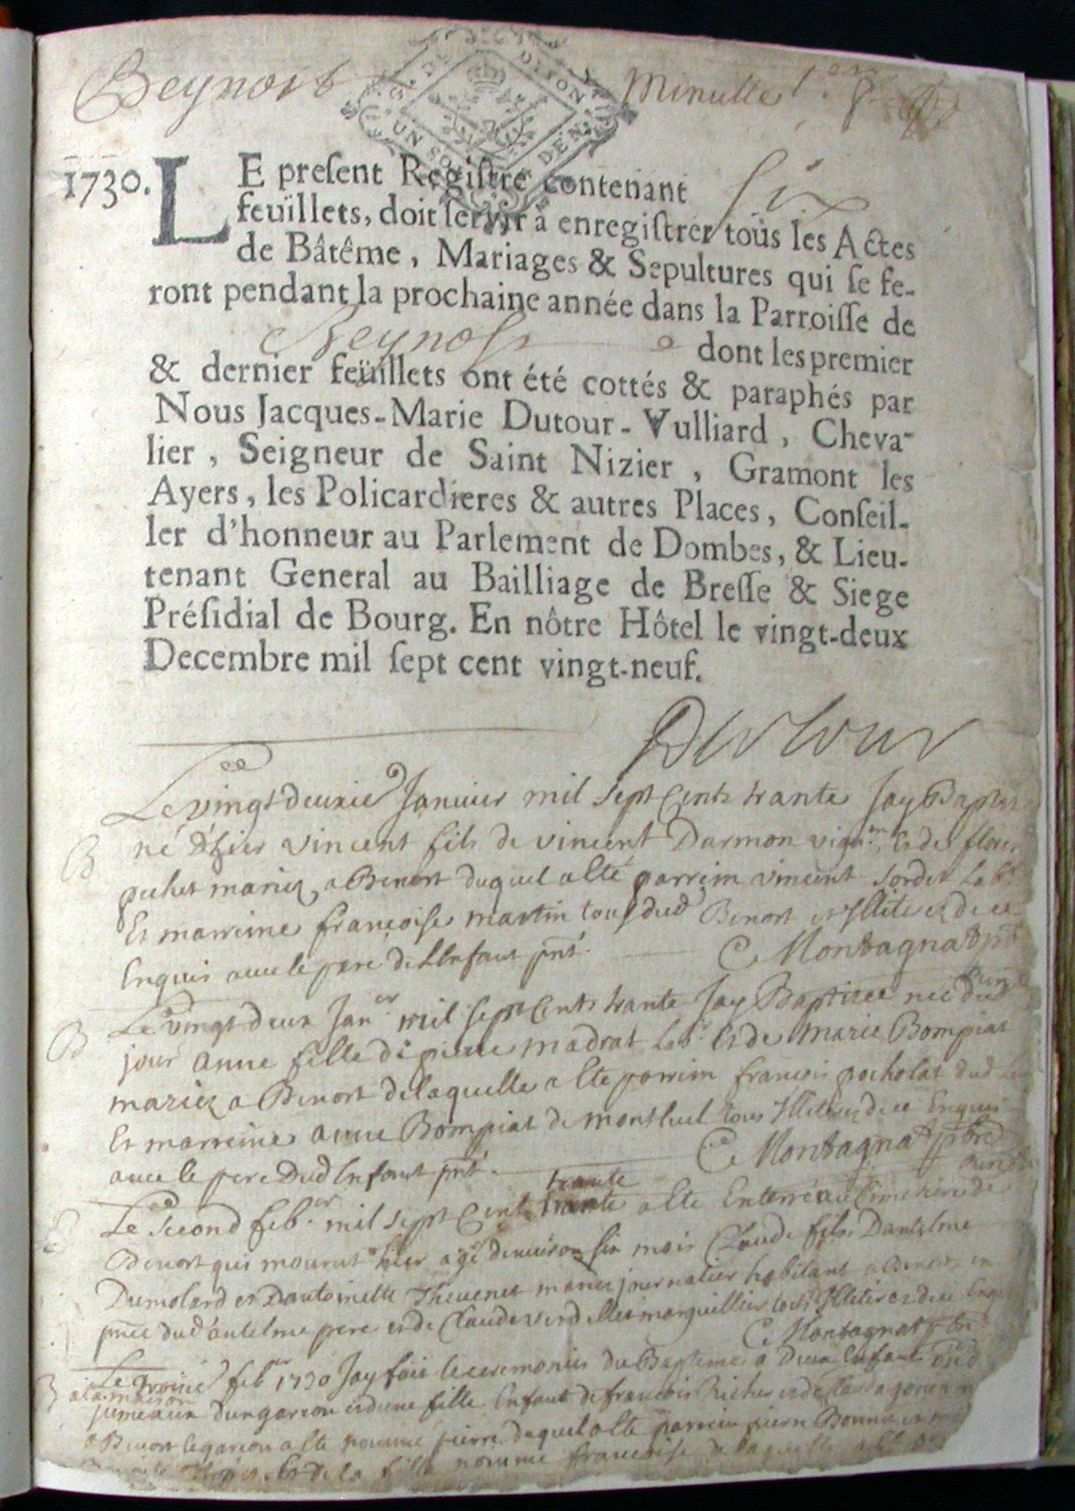 Beynost Minutte 1er
G. DE DIJON
UN SOL DEN.
1730. LE preſent Regiſtre contenant Six
feüillets, doit ſervir à enregiſtrer tous les Actes
de Bâtême, Mariages & Sepultures qui ſe fe-
ront pendant la prochaine année dans la Parroiſſe de
Beynost dont les premier
& dernier feüillets ont été cottés & paraphés par
Nous Jacques-Marie Dutour-Vulliard, Cheva-
lier, Seigneur de Saint Nizier, Gramont les
Ayers, les Policardieres & autres Places, Conſeil-
ler d'honneur au Parlement de Dombes, & Lieu-
tenant General au Bailliage de Breſſe & Siege
Préſidial de Bourg. En nôtre Hôtel le vingt-deux
Decembre mil ſept cent vingt-neuf.
Dutour
Le vingt deuxie Janvier mil sept Cents trante Jay Baptisé
B né d'hier vincent fils de vincent Darmon vign.on & de fleurie
pochet mariez a Benort duquel a Eté parrein vincent Sordet Lab.r
Et marreine françoise martin tous dud Benort et Illiterez de ce
Enquis avec le pere de L'enfant pnt. C Montagnat
B Le vingt deux Jan.er mil sept Cents trante Jay Baptizée née dud
jour anne fille de pierre madrat Lab.r & de marie Bompiat
mariez a Benort de laquelle a Ete parrein francois pocholat dud
Et marreine anne Bompiat de montluel tous Illiterez de ce Enquis
avec le pere Dud Enfant pnt. C Montagnat
trante
Le Second feb.er mil sept Cents trante a Ete Enterré au Cimetiere de
Benort qui mourut hier agé denviron six mois Claude fils Dantelme
Dumolard et Dantoinette Thevenet mariez journalier habitant a Benort en
pnce dud antelme pere et de Claude marguillier tous Illiterez de ce
C Montagnat
Le troisie feb.er 1730 Jay fait les ceremonies du Bapteme a Deux Enfants
a la maison
jumeaux dun garcon et dune fille Enfant de francois Richer et de
a Benort le garcon a Ete nommé pierre duquel a Ete parrein pierre Bonnet
de la fille nommé francoise de laquelle a